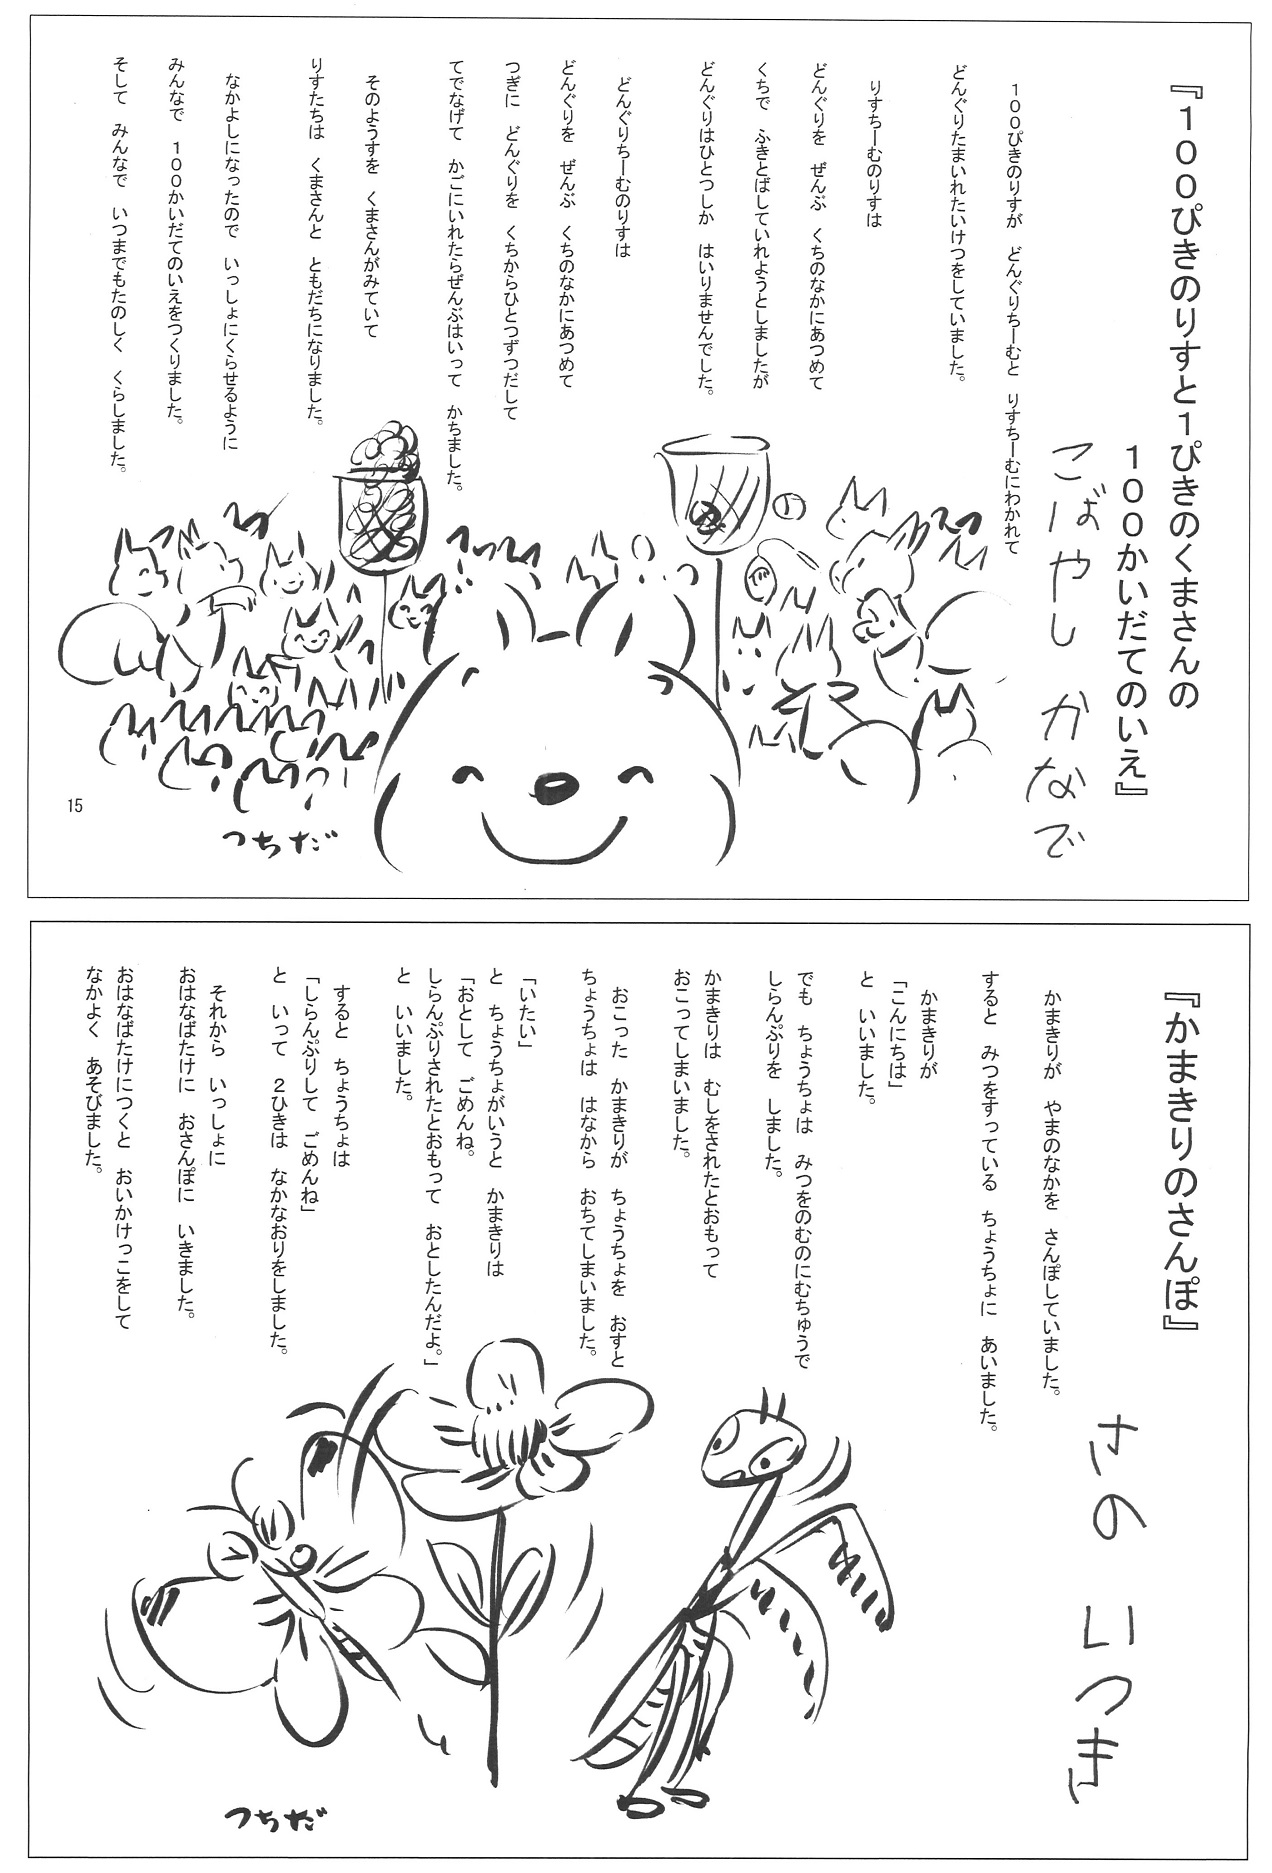 『１００ぴきのりすと１ぴきのくまさんの
１００かいだてのいえ』
こばやし かなで
１００ぴきのりすが どんぐりちーむと りすちーむにわかれて
どんぐりたまいれたいけつをしていました。
りすちーむのりすは
どんぐりを ぜんぶ くちのなかにあつめて
くちで ふきとばしていれようとしましたが
どんぐりはひとつしか はいりませんでした。
どんぐりちーむのりすは
どんぐりを ぜんぶ くちのなかにあつめて
つぎに どんぐりを くちからひとつずつだして
てでなげて かごにいれたらぜんぶはいって かちました。
そのようすを くまさんがみていて
りすたちは くまさんと ともだちになりました。
なかよしになったので いっしょにくらせるように
みんなで １００かいだてのいえをつくりました。
そして みんなで いつまでもたのしく くらしました。
つちだ
15
『かまきりのさんぽ』
さの いつき
かまきりが やまのなかを さんぽしていました。
すると みつをすっている ちょうちょに あいました。
かまきりが
「こんにちは」
と いいました。
でも ちょうちょは みつをのむのにむちゅうで
しらんぷりを しました。
かまきりは むしをされたとおもって
おこってしまいました。
おこった かまきりが ちょうちょを おすと
ちょうちょは はなから おちてしまいました。
「いたい」
と ちょうちょがいうと かまきりは
「おとして ごめんね。
しらんぷりされたとおもって おとしたんだよ。」
と いいました。
すると ちょうちょは
「しらんぷりして ごめんね」
と いって ２ひきは なかなおりをしました。
それから いっしょに
おはなばたけに おさんぽに いきました。
おはなばたけにつくと おいかけっこをして
なかよく あそびました。
つちだ